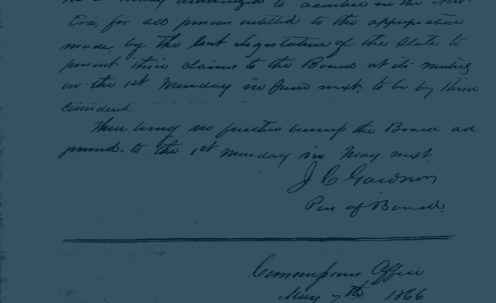 Era for all persons entitled to the appropriation
made by the last Legislature of the State to
present their claims to the Board at its meeting
on the 1st Monday in June next. to be by them
considered.
There being no further business the Board ad
journed. to the 1st Monday in May next.
Pres of Board.
Commissioners Office
May 7th 1866